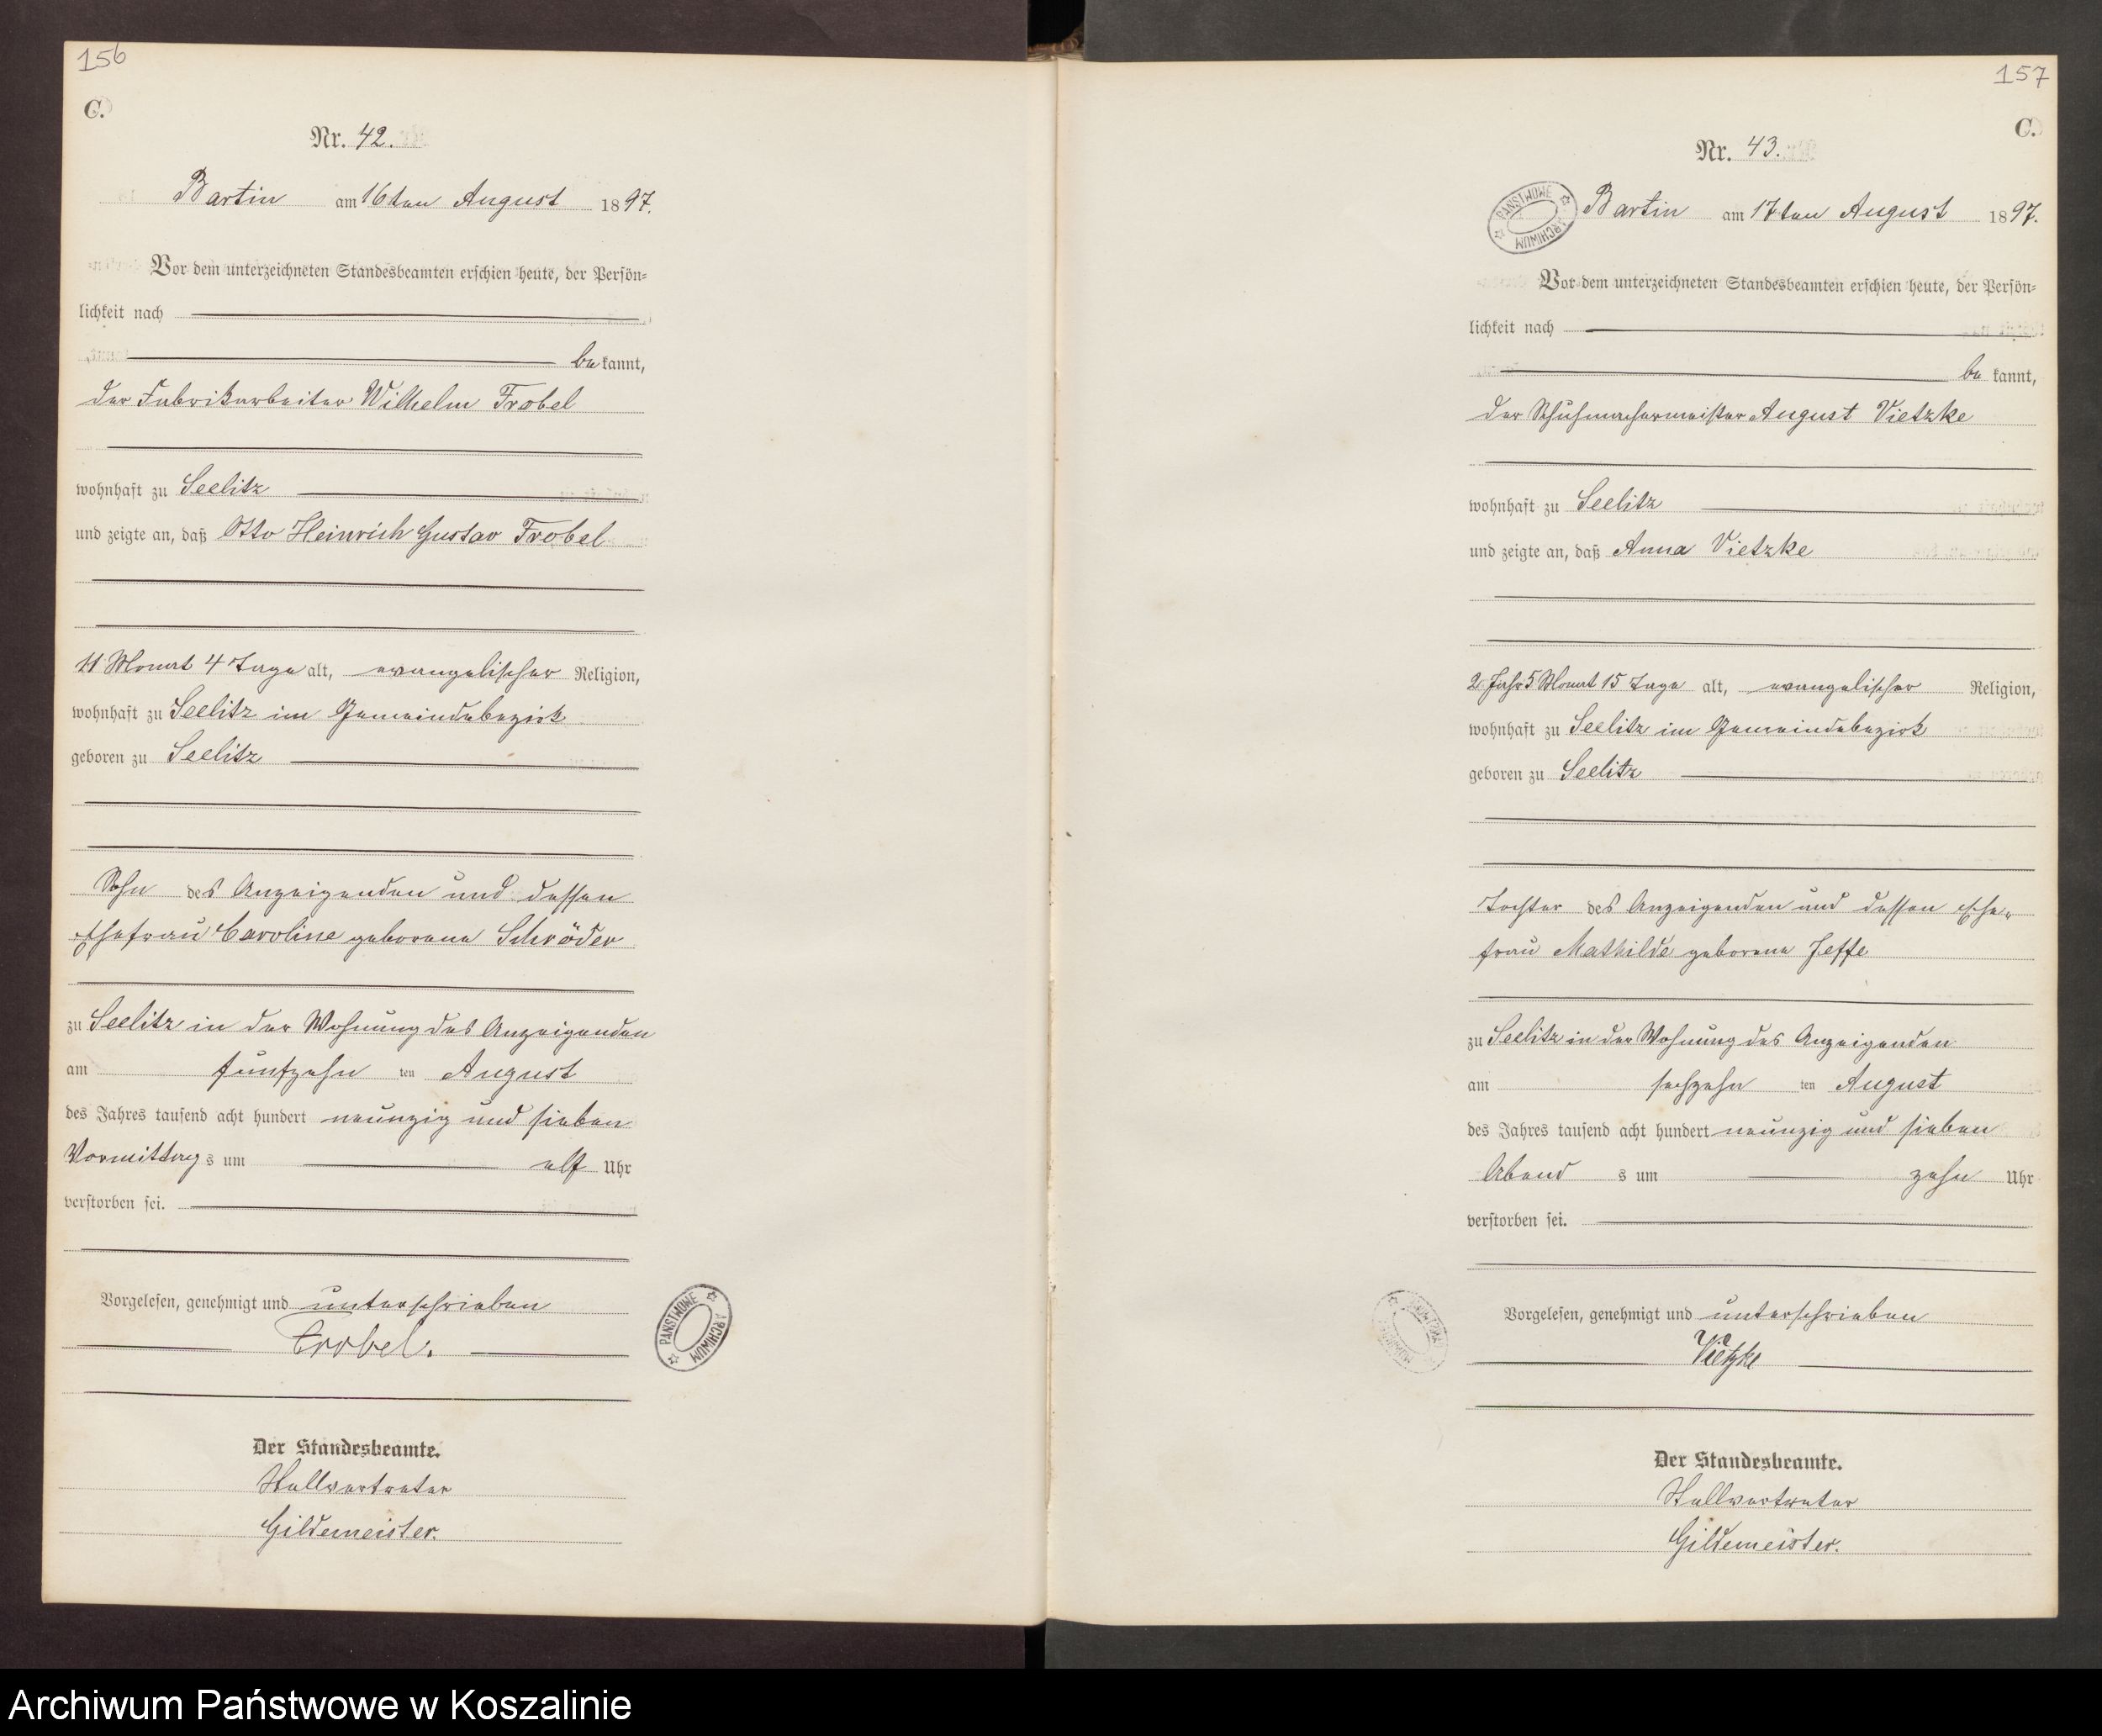 156
C.
Nr. 42.
Bartin am 16ten August 1897.
Vor dem unterzeichneten Standesbeamten erschien heute, der Persön=
lichkeit nach
bekannt,
der Fabrikarbeiter Wilhelm Frobel
wohnhaft zu Seelitz
und zeigte an, daß Otto Heinrich Gustav Frobel
11 Monat 4 Tage alt, evangelischer Religion,
wohnhaft zu Seelitz im Gemeindebezirk
geboren zu Seelitz
Sohn des Anzeigenden und dessen
Ehefrau Caroline geborene Schröder
zu Seelitz in der Wohnung des Anzeigenden
am fünfzehn ten August
des Jahres tausend acht hundert neunzig und sieben
Vormittags um elf Uhr
verstorben sei.
Vorgelesen, genehmigt und unterschrieben
Frobel.
PAŃSTWOWE ARCHIWUM
Der Standesbeamte.
Stellvertreter
Gildemeister.
157
C.
Nr. 43.
PAŃSTWOWE ARCHIWUM
Bartin am 17ten August 1897.
Vor dem unterzeichneten Standesbeamten erschien heute, der Persön=
lichkeit nach
be kannt,
der Schuhmachermeister August Vietzke
wohnhaft zu Seelitz
und zeigte an, daß Anna Vietzke
2 Jahr 5 Monat 15 Tage alt, evangelischer Religion,
wohnhaft zu Seelitz im Gemeindebezirk
geboren zu Seelitz
Tochter des Anzeigenden und dessen Ehe„
frau Mathilde geborene Jeffe
zu Seelitz in der Wohnung des Anzeigenden
am sechzehn ten August
des Jahres tausend acht hundert neunzig und sieben
Abend s um zehn Uhr
verstorben sei.
Vorgelesen, genehmigt und unterschrieben
Vietzke
Der Standesbeamte.
Stellvertreter
Gildemeister.
Archiwum Państwowe w Koszalinie